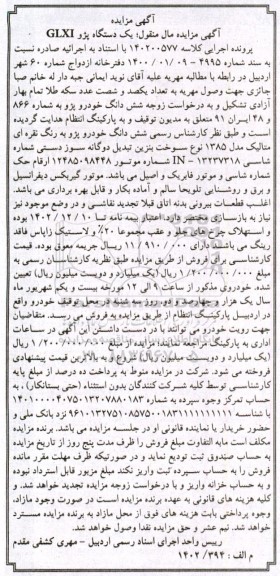 آگهی مزایده
آگهی مزایده مال منقول؛ یک دستگاه پژو GLXI
پرونده اجرایی کلاسه ۱۴۰۲۰۰۵۷۷ با استناد به اجرائیه صادره نسبت
به سند شماره ۴۹۹۵ - ۰۹ / ۰۱ / ۱۴۰۰ دفترخانه ازدواج شماره ۶۰ شهر
اردبیل در رابطه با مطالبه مهریه علیه آقای نوید ایمانی جبه دار له خانم صبا
جائزی جهت وصول مهریه به تعداد یکصد و شصت عدد سکه طلا تمام بهار
آزادی تشکیل و به درخواست زوجه شش دانگ خودرو پژو به شماره ۸۶۶
و ۴۸ ایران ۹۱ متعلق به مدیون توقیف و به پارکینگ انتظام هدایت گردیده
است و طبق نظر کارشناس رسمی شش دانگ خودرو پژو به رنگ نقره ای
متالیک مدل ۱۳۸۵ نوع سوخت بنزین تبدیل دوگانه سوز دستی شماره
شاسی ۱۳۲۳۷۳۱۸ - IN شماره موتور ۱۲۴۸۵۰۹۸۴۴۸ ارقام حک
شماره شاسی و موتور فابریک و اصیل می باشد. موتور گیربکس دیفرانسیل
و برق و روشنایی تلویحا سالم و آماده بکار و قابل بهره برداری می باشد.
اغلب قطعات بیرونی بدنه اتاق قبلا تجدید نقاشی و در وضع موجود نیز
نیاز به بازسازی مختصر دارد. اعتبار بیمه نامه تا ۱۰ / ۱۲ / ۱۴۰۲ بوده
و استهلاک چرخ های جلو و عقب مجموعا ۲۰٪ و لاستیک زاپاس فاقد
رینگ می باشند. دارای ۰۰۰ / ۹۱۰ / ۱۱ ریال جریمه معوق بوده. قیمت
کارشناسی برای فروش از طریق مزایده طبق نظریه کارشناسان رسمی به
مبلغ ۰۰۰ / ۰۰۰ / ۲۰۰ / ۱ ریال (یک میلیارد و دویست میلیون ریال) تعیین
شده. خودروی مذکور از ساعت ۹ الی ۱۲ مورخه بیست و یکم شهریور ماه
سال یک هزار و چهارصد و دو، روز سه شنبه در محل توقف خودرو واقع
در اردبیل پارکینگ انتظام از طریق مزایده به فروش می رسد. متقاضیان
جهت رویت خودرو می توانند با در دست داشتن این آگهی در ساعات
اداری به پارکینگ مراجعه نمایند؛ مزایده از مبلغ ۰۰۰ / ۰۰۰ / ۲۰۰ / ۱ ریال
(یک میلیارد و دویست میلیون ریال) شروع و به بالاترین قیمت پیشنهادی
فروخته می شود. شرکت در مزایده منوط به پرداخت ده درصد از مبلغ پایه
کارشناسی توسط کلیه شرکت کنندگان بدون استثناء (حتی بستانکار) ، به
حساب تمرکز وجوه سپرده به شماره
با شناسه نزد بانک ملی و
حضور خریدار یا نماینده قانونی او در جلسه مزایده می باشد. برنده مزایده
مکلف است مابه التفاوت مبلغ فروش را ظرف مدت پنج روز از تاریخ مزایده
به حساب صندوق ثبت تودیع نماید و در صورتیکه ظرف مهلت مقرر مانده
فروش را به حساب سپرده ثبت واریز نکند مبلغ مزبور قابل استرداد نبوده
و به حساب خزانه واریز و با درخواست زوجه مزایده تجدید خواهد شد. و
کلیه هزینه های قانونی به عهده برنده مزایده است در صورت وجود مازاد،
وجوه پرداختی بابت هزینه های فوق از محل مازاد به برنده مزایده مسترد
خواهد شد. نیم عشر و حق مزایده نقدا وصول خواهد شد.
رییس واحد اجرای اسناد رسمی اردبیل - مهری کشفی مقدم
م الف : ۳۹۴ / ۱۴۰۲